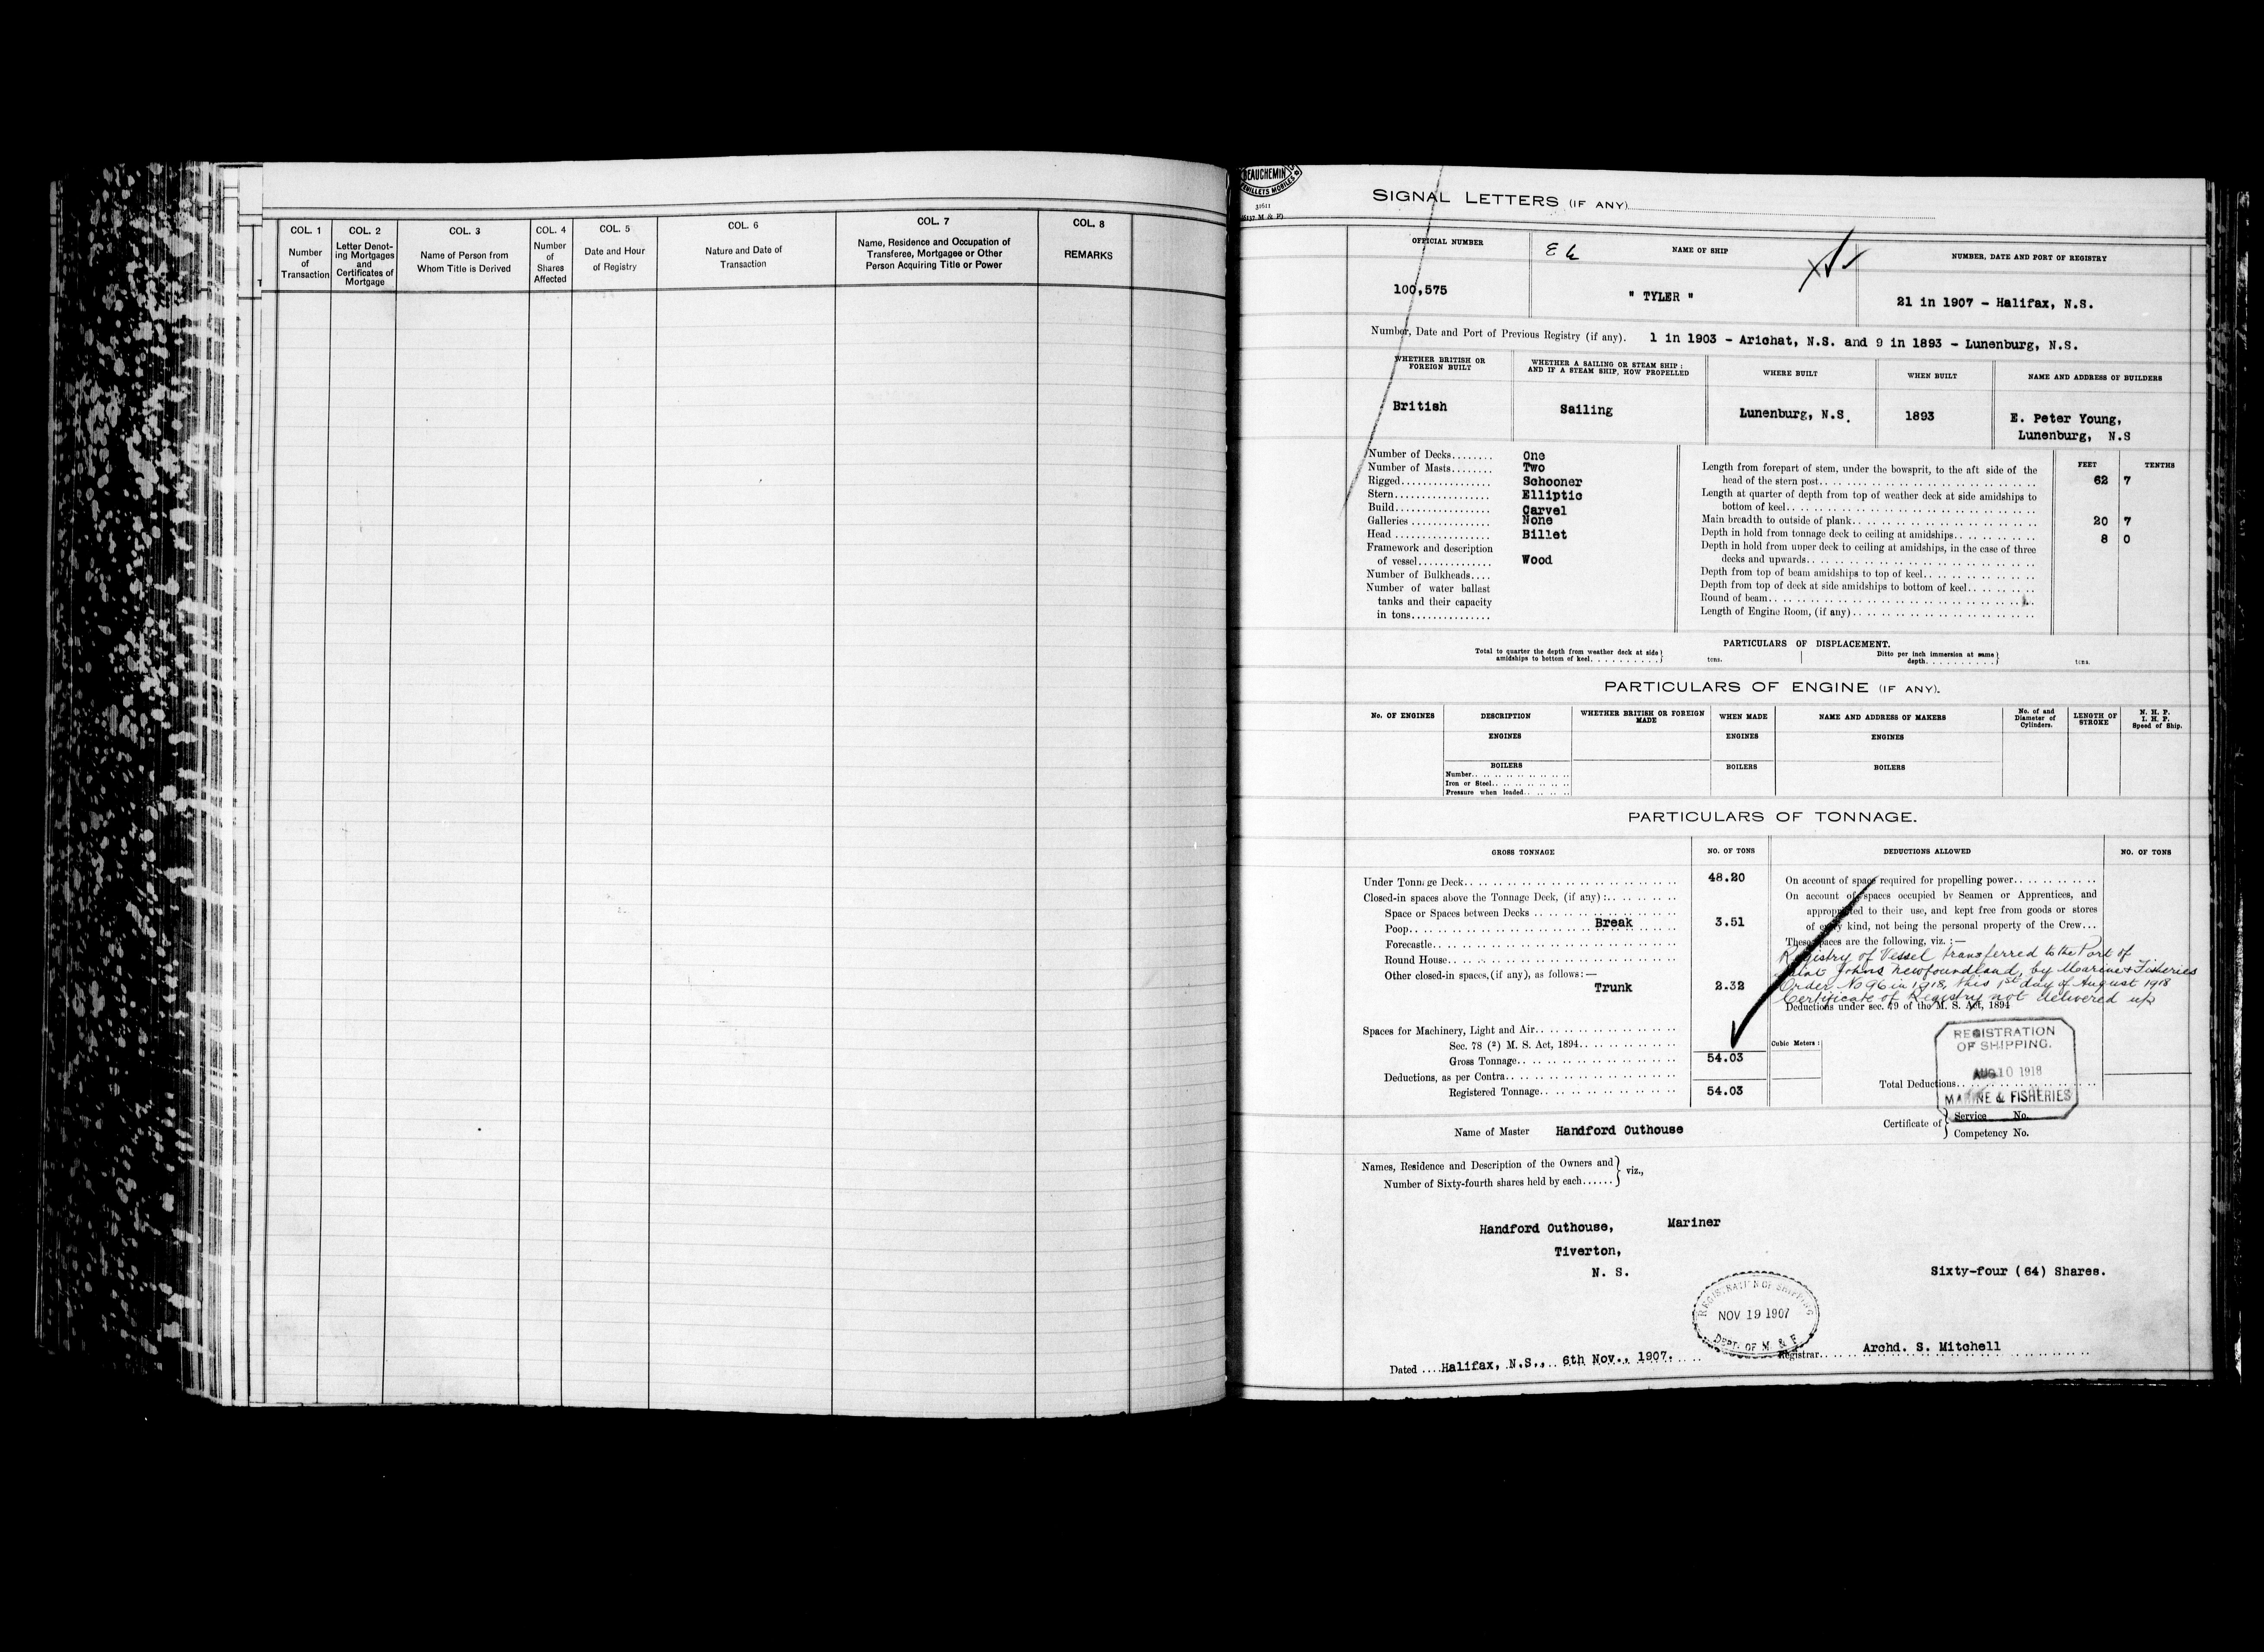 COL. 1
Number
of
Transaction
COL. 2
Letter Denot-
ing Mortgages
and
Certificates of
Mortgage
COL. 3
Name of Person from
Whom Title is Derived
COL. 4
Number
of
Shares
Affected
COL. 5
Date and Hour
of Registry
COL. 6
Nature and Date of
Transaction
COL. 7
Name, Residence and Occupation of
Transferee, Mortgagee or Other
Person Acquiring Title or Power
COL. 8
REMARKS
BEAUCHEMIN
FEUILLETS MOBILES
31611
M & F)
SIGNAL LETTERS (IF ANY)
OFFICIAL NUMBER
100,575
NAME OF SHIP
" TYLER "
NUMBER, DATE AND PORT OF REGISTRY
21 in 1907 - Halifax, N.S.
Number, Date and Port of Previous Registry (if any). 1 in 1903 - Arichat, N.S. and 9 in 1893 - Lunenburg, N.S.
WHETHER BRITISH OR
FOREIGN BUILT
British
WHETHER A SAILING OR STEAM SHIP;
AND IF A STEAM SHIP, HOW PROPELLED
Sailing
WHERE BUILT
Lunenburg, N.S.
WHEN BUILT
1893
NAME AND ADDRESS OF BUILDERS
E. Peter Young,
Lunenburg, N.S
Number of Decks........ One
Number of Masts........ Two
Rigged................ Schooner
Stern................. Elliptic
Build................. Carvel
Galleries .............. None
Head ................. Billet
Framework and description
of vessel.............. Wood
Number of Bulkheads....
Number of water ballast
tanks and their capacity
in tons...............
FEET TENTHS
Length from forepart of stem, under the bowsprit, to the aft side of the
head of the stern post.. 62 7
Length at quarter of depth from top of weather deck at side amidships to
bottom of keel..
Main breadth to outside of plank.. 20 7
Depth in hold from tonnage deck to ceiling at amidships.. 8 0
Depth in hold from upper deck to ceiling at amidships, in the case of three
decks and upwards..
Depth from top of beam amidships to top of keel..
Depth from top of deck at side amidships to bottom of keel..
Round of beam..
Length of Engine Room, (if any)..
PARTICULARS OF DISPLACEMENT.
Total to quarter the depth from weather deck at side
amidships to bottom of keel.......... tons.
Ditto per inch immersion at same
depth.......... tons.
PARTICULARS OF ENGINE (IF ANY).
No. OF ENGINES
DESCRIPTION
WHETHER BRITISH OR FOREIGN
MADE
WHEN MADE
NAME AND ADDRESS OF MAKERS
No. of and
Diameter of
Cylinders.
LENGTH OF
STROKE
N. H. P.
I. H. P.
Speed of Ship.
ENGINES ENGINES ENGINES
BOILERS BOILERS BOILERS
Number..
Iron or Steel..
Pressure when loaded..
PARTICULARS OF TONNAGE.
GROSS TONNAGE NO. OF TONS
Under Tonnage Deck.. 48.20
Closed-in spaces above the Tonnage Deck, (if any):..
Space or Spaces between Decks ..
Poop.. Break 3.51
Forecastle..
Round House..
Other closed-in spaces, (if any), as follows:—
Trunk 2.32
Spaces for Machinery, Light and Air..
Sec. 78 (2) M. S. Act, 1894..
Gross Tonnage.. 54.03
Deductions, as per Contra..
Registered Tonnage.. 54.03
Cubic Meters:
DEDUCTIONS ALLOWED NO. OF TONS
On account of space required for propelling power..
On account of spaces occupied by Seamen or Apprentices, and
appropriated to their use, and kept free from goods or stores
of every kind, not being the personal property of the Crew...
These spaces are the following, viz.:—
Registry of Vessel transferred to the Port of
Saint Johns Newfoundland, by Marine & Fisheries
Order No 96 in 1918, this 1st day of August 1918
Certificate of Registry not delivered up
Deductions under sec. 79 of the M. S. Act, 1894
REGISTRATION
OF SHIPPING.
AUG 10 1918
MARINE & FISHERIES
Total Deductions..
Name of Master Handford Outhouse
Certificate of
Service No.
Competency No.
Names, Residence and Description of the Owners and
Number of Sixty-fourth shares held by each......
viz.,
Handford Outhouse, Mariner
Tiverton,
N. S.
Sixty-four (64) Shares.
REGISTRATION OF SHIPPING
NOV 19 1907
DEPT. OF M. & F.
Dated ....Halifax, N.S., 6th Nov., 1907.
Registrar.. Archd. S. Mitchell